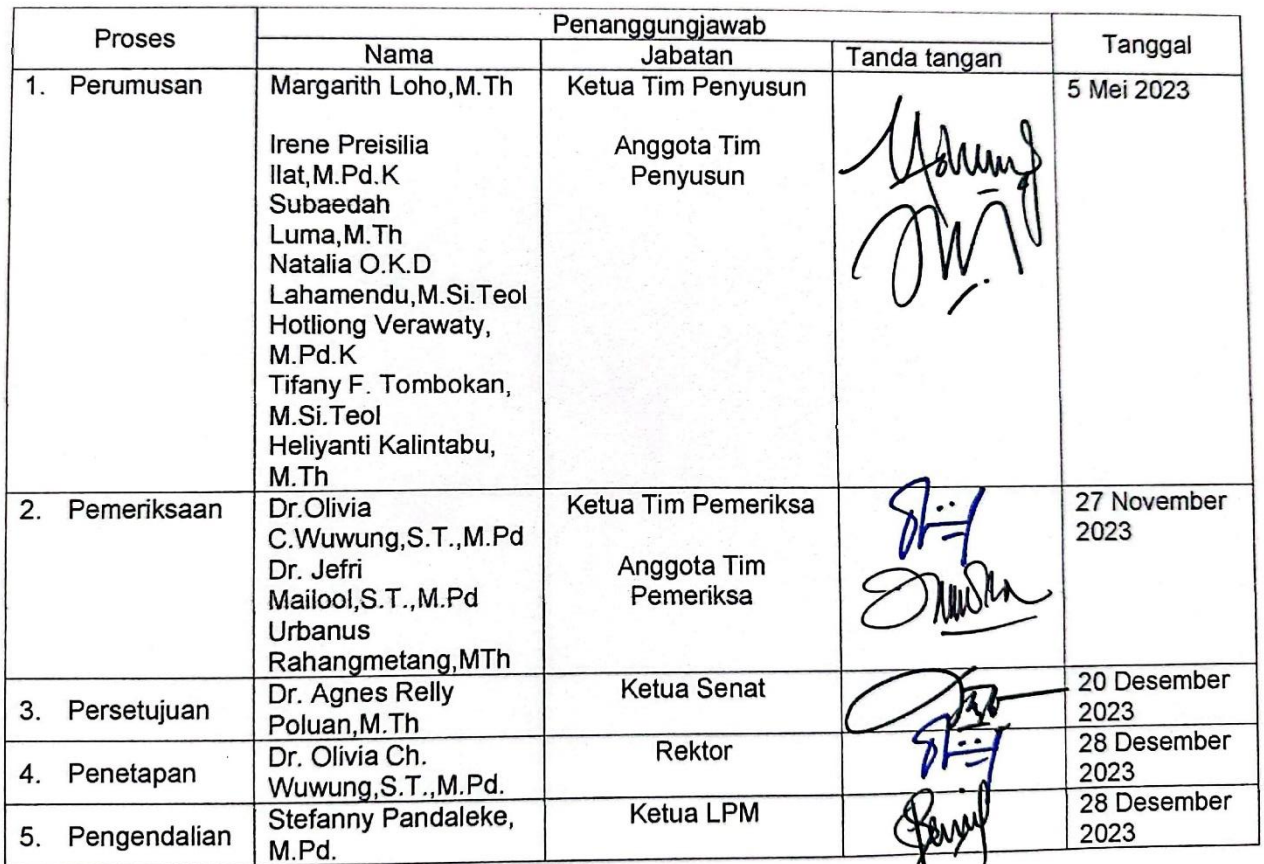 Proses
Penanggungjawab
Tanggal
Nama
Jabatan
Tanda tangan
1. Perumusan
Marganth Loho,M.Th
Ketua Tim Penyusun
5 Mei 2023
Irene Preisilia
Ilat,M.Pd.K
Subaedah
Luma,M.Th
Natalia O.K.D
Lahamendu,M.Si.Teol
Hotliong Verawaty,
M.Pd.K
Tifany F. Tombokan,
M.Si.Teol
Heliyanti Kalintabu,
M.Th
Anggota Tim
Penyusun
2. Pemeriksaan
Dr.Olivia
C.Wuwung,S.T.,M.Pd
Dr. Jefri
Mailool,S.T.,M.Pd
Urbanus
Rahangmetang,MTh
Ketua Tim Pemeriksa
Anggota Tim
Pemeriksa
27 November
2023
3. Persetujuan
Dr. Agnes Relly
Poluan,M.Th
Ketua Senat
20 Desember
2023
4. Penetapan
Dr. Olivia Ch.
Wuwung,S.T.,M.Pd.
Rektor
28 Desember
2023
5. Pengendalian
Stefanny Pandaleke,
M.Pd.
Ketua LPM
28 Desember
2023